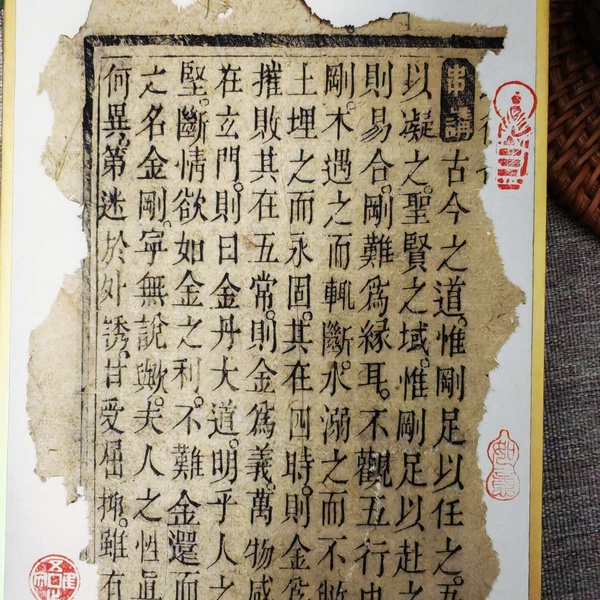 串講古今之道。惟剛足以任之。
以凝之。聖賢之域。惟剛足以赴之
則易合。剛難爲緣耳。不觀五行中
剛。木遇之而輒斷。水溺之而不敝
土埋之而永固。其在四時。則金爲
摧敗其在五常。則金爲義。萬物感
在玄門。則曰金丹大道。明乎人之
堅。斷情欲如金之利。不難金還而
之名金剛。寧無說歟。夫人之性眞
何異。第迷於外誘。甘受屈抑。雖有